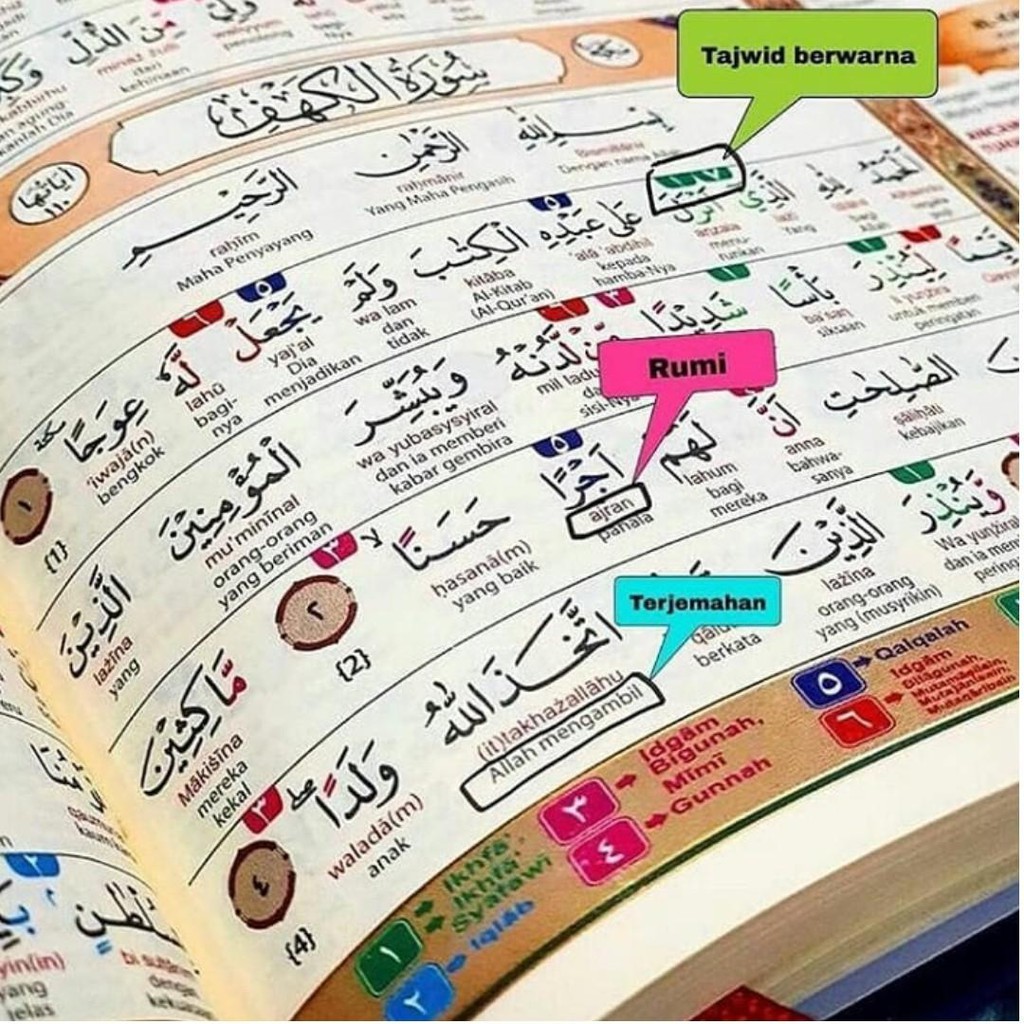 Tajwid berwarna
مِنَ الذُّلِّ
minaż żulli
dari
kehinaan
سُورَةُ الْكَهْفِ
اٰيَاتُهَا ١١٠
بِسْمِ اللّٰهِ الرَّحْمٰنِ الرَّحِيْمِ
Bismillāhir raḥmānir raḥīm
Dengan nama Allah Yang Maha Pengasih Maha Penyayang
اَلْحَمْدُ لِلّٰهِ الَّذِيْٓ اَنْزَلَ عَلٰى عَبْدِهِ الْكِتٰبَ وَلَمْ يَجْعَلْ لَّهٗ عِوَجًا ۜ ١
lażī anzala 'alā 'abdihil kitāba wa lam yaj'al lahū 'iwajā(n)
bagi Yang menu-runkan kepada hamba-Nya Al-Kitab (Al-Qur'an) dan tidak Dia menjadikan bagi-nya bengkok
{1}
قَيِّمًا لِّيُنْذِرَ بَأْسًا شَدِيْدًا مِّنْ لَّدُنْهُ وَيُبَشِّرَ الْمُؤْمِنِيْنَ الَّذِيْنَ
li yunżira ba'san mil ladu wa yubasysyiral mu'minīnal lażīna
untuk memberi peringatan siksaan sisi-Nya dan ia memberi kabar gembira orang-orang yang beriman yang
Rumi
الصّٰلِحٰتِ اَنَّ لَهُمْ اَجْرًا حَسَنًا ۙ ٢ مَّاكِثِيْنَ
ṣāliḥāti anna lahum ajran ḥasanā(m) Mākiṡīna
kebajikan bahwa-sanya bagi mereka pahala yang baik mereka kekal
{2}
Terjemahan
وَّيُنْذِرَ الَّذِيْنَ اتَّخَذَ اللّٰهُ وَلَدًا ۖ ٤
Wa yunżira lażīna qālu (it)takhażallāhu waladā(m)
dan ia mem peringa orang-orang yang (musyrikin) berkata Allah mengambil anak
{4}
١ Ikhfā', Ikhfā' Syafawi
٢ Iqlāb
٣ Idgām Bigunah, Mīmī
٤ Gunnah
٥ Qalqalah
٦ Idgām Bilāgunah, Mutamāṡilain, Mutajānisain, Mutaqāribain